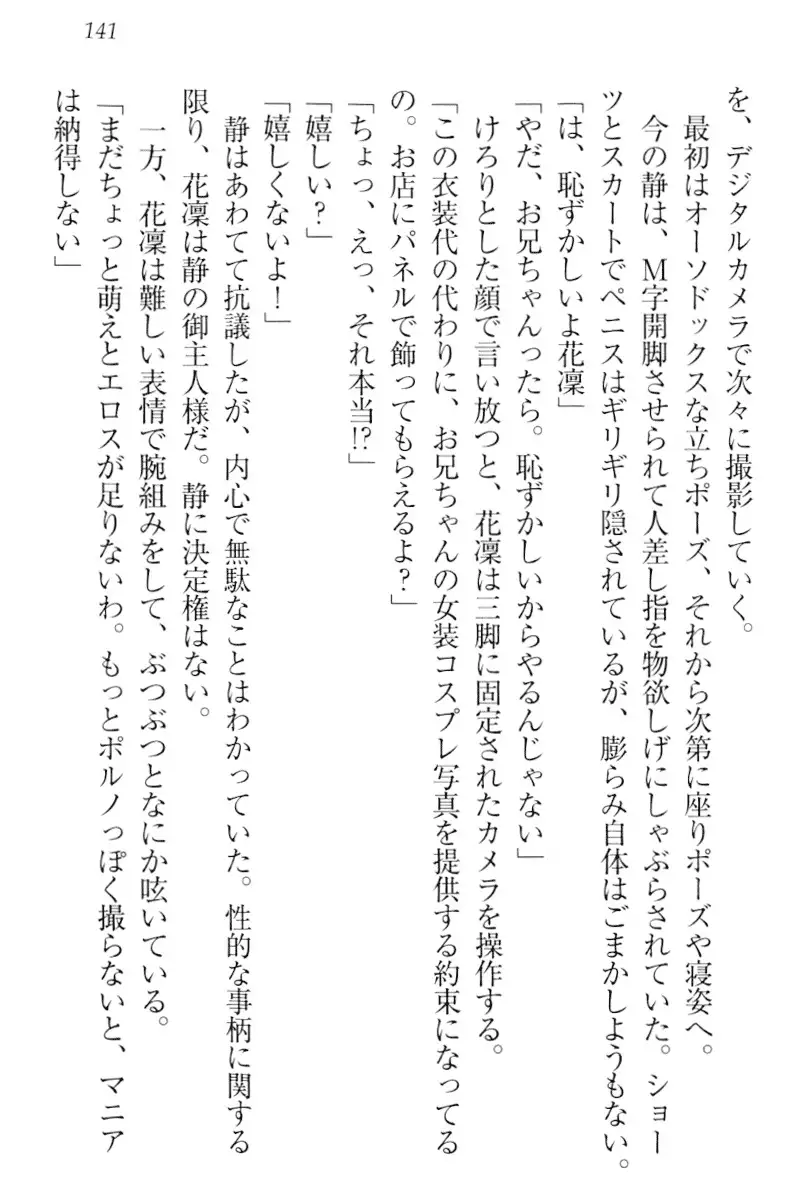 141
を、デジタルカメラで次々に撮影していく。
最初はオーソドックスな立ちポーズ、それから次第に座りポーズや寝姿へ。
今の静は、M字開脚させられて人差し指を物欲しげにしゃぶらされていた。ショー
ツとスカートでペニスはギリギリ隠されているが、膨らみ自体はごまかしようもない。
「は、恥ずかしいよ花凜」
「やだ、お兄ちゃんったら。恥ずかしいからやるんじゃない」
けろりとした顔で言い放つと、花凜は三脚に固定されたカメラを操作する。
「この衣装代の代わりに、お兄ちゃんの女装コスプレ写真を提供する約束になってる
の。お店にパネルで飾ってもらえるよ?」
「ちょっ、えっ、それ本当!?」
「嬉しい?」
「嬉しくないよ!」
静はあわてて抗議したが、内心で無駄なことはわかっていた。性的な事柄に関する
限り、花凜は静の御主人様だ。静に決定権はない。
一方、花凜は難しい表情で腕組みをして、ぶつぶつとなにか呟いている。
「まだちょっと萌えとエロスが足りないわ。もっとポルノっぽく撮らないと、マニア
は納得しない」